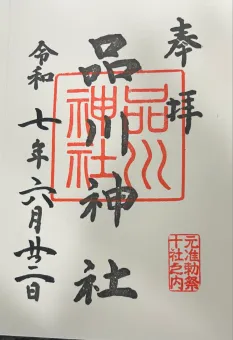 奉拝
品川神社
品川神社
元准勅祭
十社之内
令和七年六月廿二日